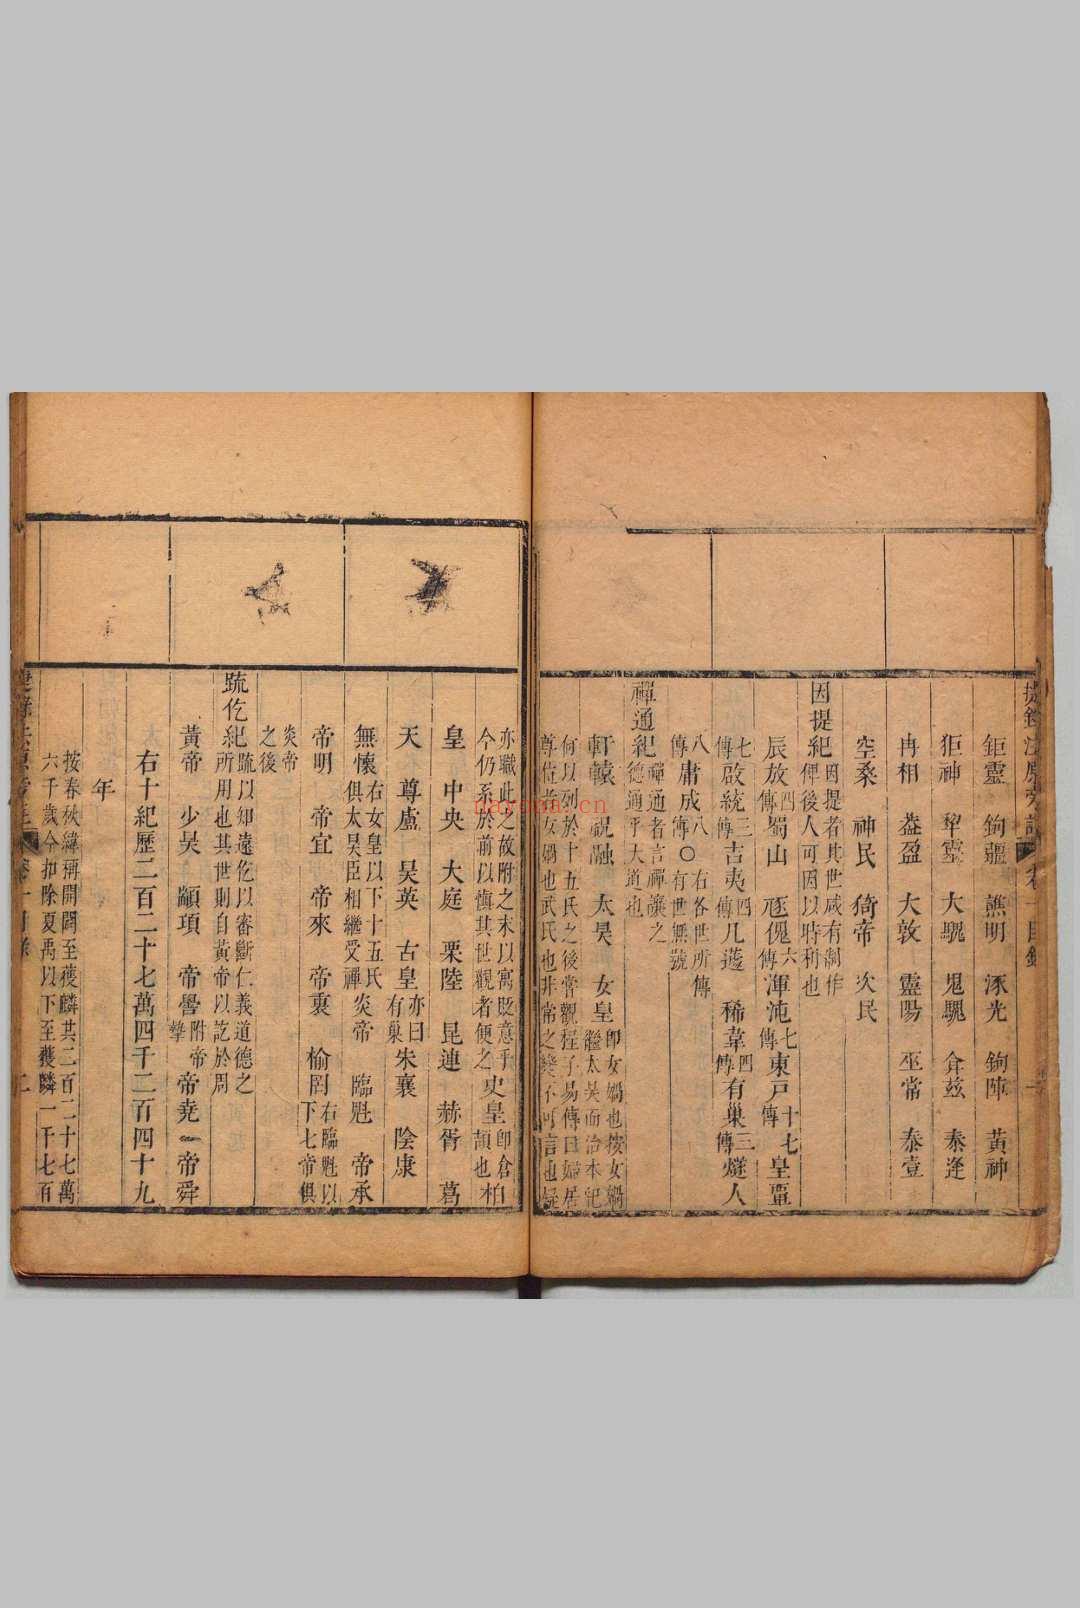 鉅靈 鉤疆 譙明 涿光 鉤陣 黃神
狟神 犂靈 大騩 鬼騩 弇茲 泰逢
冉相 葢盈 大敦 靈陽 巫常 泰壹
空桑 神民 倚帝 次民
因提紀 因提者其世咸有制作俾後人可因以時利也
辰放傳四 蜀山 豗傀傳六 渾沌傳七 東戶傳十七 皇覃
傳七 啟統傳三 吉夷傳四 几蘧 狶韋傳四 有巢傳三 燧人
傳八 庸成傳八 ○右各世所傳有世無號
禪通紀 禪通者言禪讓之德通乎大道也
軒轅 祝融 太昊 女皇 即女媧也按女媧繼太昊而治本記
何以列於十五氏之後嘗觀程子易傳曰婦居尊位者女媧也武氏也非常之變不可言也疑
亦職此之故附之末以寓貶意乎今仍系於前以慎其世觀者便之 史皇 即倉頡也 柏
皇 中央 大庭 栗陸 昆連 赫胥 葛
天 尊盧 昊英 古皇 亦曰有巢 朱襄 陰康
無懷 右女皇以下十五氏俱太昊臣相繼受禪 炎帝 臨魁 帝承
帝明 帝宜 帝來 帝裏 榆罔 右臨魁以下七帝俱
炎帝之後
疏仡紀 疏以知遠仡以審斷仁義道德之所用也其世則自黃帝以訖於周
黃帝 少昊 顓頊 帝嚳 附帝摯 帝堯 帝舜
右十紀歷二百二十七萬四千二百四十九
年
按春秋緯稱開闢至獲麟共二百二十七萬六千歲今扣除夏禹以下至獲麟一千七百
nayona.cn